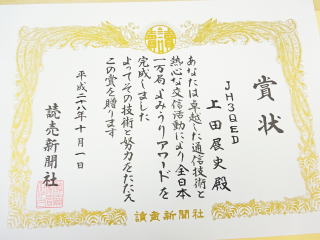 賞状
JH3QED
上田展史殿
あなたは卓越した通信技術と
熱心な交信活動により全日本
一万局よみうりアワードを
完成しました
よってその技術と努力をたたえ
この賞を贈ります
平成二十八年十月一日
読売新聞社
讀賣新聞社